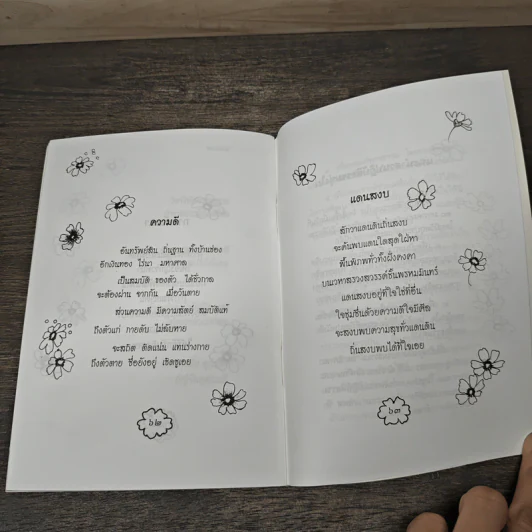 ความดี
อันทรัพย์สิน ถิ่นฐาน ทั้งบ้านช่อง
อีกเงินทอง ไร่นา มหาศาล
เป็นสมบัติ ของตัว ได้ชั่วกาล
จะต้องผ่าน จากกัน เมื่อวันตาย
ส่วนความดี มีความสัตย์ สมบัติแท้
ถึงตัวแก่ กายดับ ไม่ลับหาย
จะสถิต ติดแน่น แทนร่างกาย
ถึงตัวตาย ชื่อยังอยู่ เชิดชูเอย
๖๒
แดนสงบ
สักวาแดนดินถิ่นสงบ
จะค้นพบแดนใดสุดใฝ่หา
พื้นพิภพทั่วทั้งฝั่งคงคา
บนเวหาสรวงสวรรค์ชั้นพรหมมินทร์
แดนสงบอยู่ที่ใจใช่ที่อื่น
ใจชุ่มชื่นด้วยความดีใจมีศีล
จะสงบพบความสุขทั่วแดนดิน
ถิ่นสงบพบได้ที่ใจเอย
๖๓